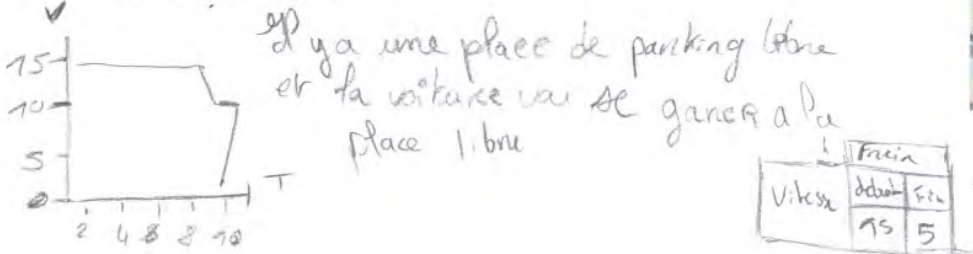 V
15
10
5
0
2 4 6 8 10
T
Il y a une place de parking libre
et la voiture va se garer a la
place libre
Frein
Vitesse debut Fin
15 5